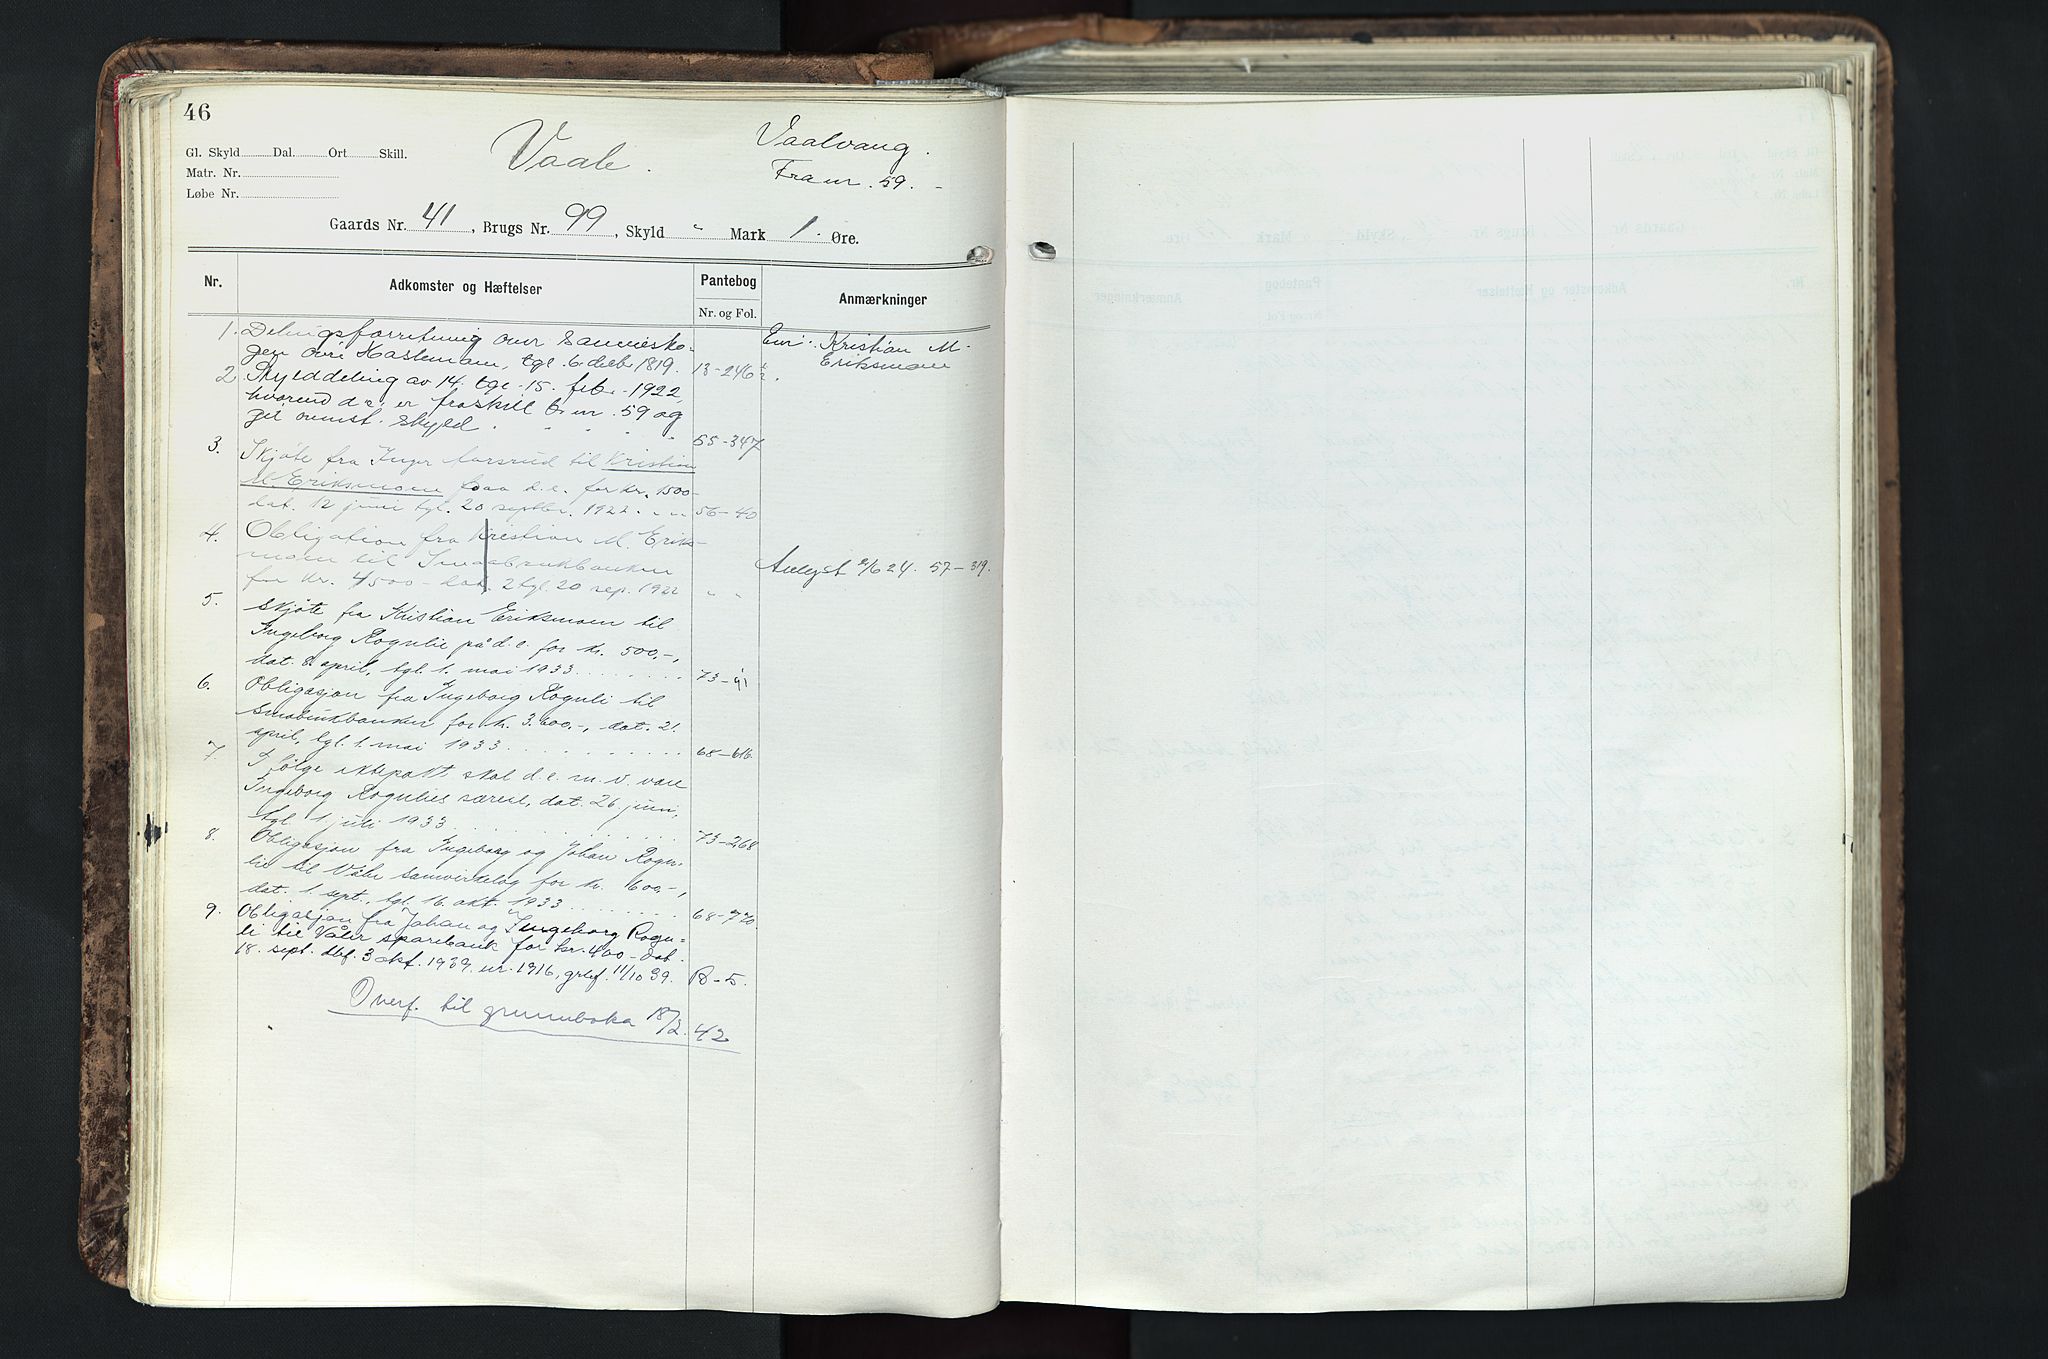 46
Gl. Skyld Dal. Ort Skill.
Matr. Nr.
Løbe Nr.
Vaale.
Vaalvang.
Fra nr. 59. -
Gaards Nr. 41, Brugs Nr. 99, Skyld " Mark 1. Øre.
Nr. Adkomster og Hæftelser Pantebog Anmærkninger
Nr. og Fol.
1. Delingsforretning over
Haslemoen, tgl. 6 decb 1819. 13-246
Eier: Kristian M.
Eriksmoen
2. Skylddeling av 14. tgl. 15. feb. 1922,
hvorved d.e. er fraskilt br nr. 59 og
git ovennst. skyld. 55-347
3. Skjøte fra Inger Aarsrud til Kristian
M. Eriksmoen paa d.e. for kr. 1500-
dat. 12 juni tgl. 20 septbr. 1922 56-40
4. Obligation fra Kristian M. Eriks-
moen til Smaabrukbanken
for kr. 4500- dat. 2 tgl. 20 sep. 1922 " "
Avlyst 2/6 24. 57-319.
5. Skjøte fra Kristian Eriksmoen til
Ingeborg Rognlie på d.e. for kr. 500,-,
dat. 8. april, tgl. 1. mai 1933 73-91
6. Obligasjon fra Ingeborg Rognli til
Småbrukbanken for kr. 3.600,-, dat. 21.
april, tgl. 1. mai 1933 68-616
7. I følge ektepakt skal d.e. m.v. være
Ingeborg Rognlies særeie, dat. 26. juni,
tgl. 1 juli 1933 73-268
8. Obligasjon fra Ingeborg og Johan Rogn-
lie til Våler samvirkelag for kr. 600,-,
dat. 1. sept., tgl. 16. okt. 1933 68-770
9. Obligasjon fra Johan og Ingeborg Rogn=
li til Våler sparebank for kr. 400- dat.
18. sept. dbf. 3 okt. 1939 nr. 1916, grbf. 11/10 39. B-5.
Overf. til grunnboka 18/2. 42